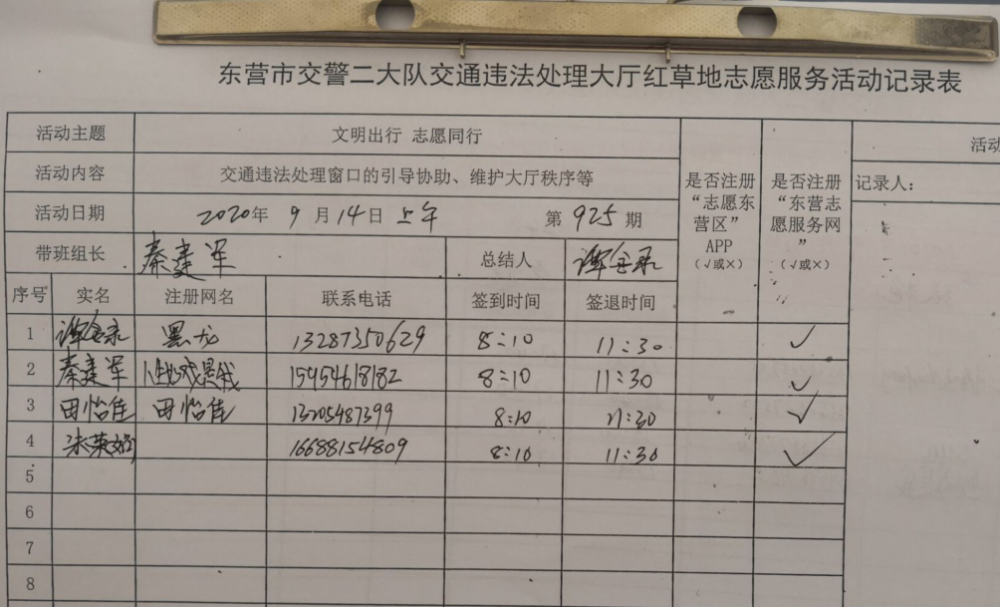 东营市交警二大队交通违法处理大厅红草地志愿服务活动记录表
活动主题 文明出行 志愿同行 活动
活动内容 交通违法处理窗口的引导协助、维护大厅秩序等
是否注册“志愿东营区”APP（√或×）
是否注册“东营志愿服务网”（√或×）
记录人：
活动日期 2020年 9月14日 上午 第925期
带班组长 秦建军 总结人
序号 实名 注册网名 联系电话 签到时间 签退时间
1 黑龙 13287350629 8:10 11:30 ✓
2 秦建军 15954618182 8:10 11:30 ✓
3 田怡佳 田怡佳 13205487399 8:10 11:30 ✓
4 16688154809 8:10 11:30 ✓
5
6
7
8